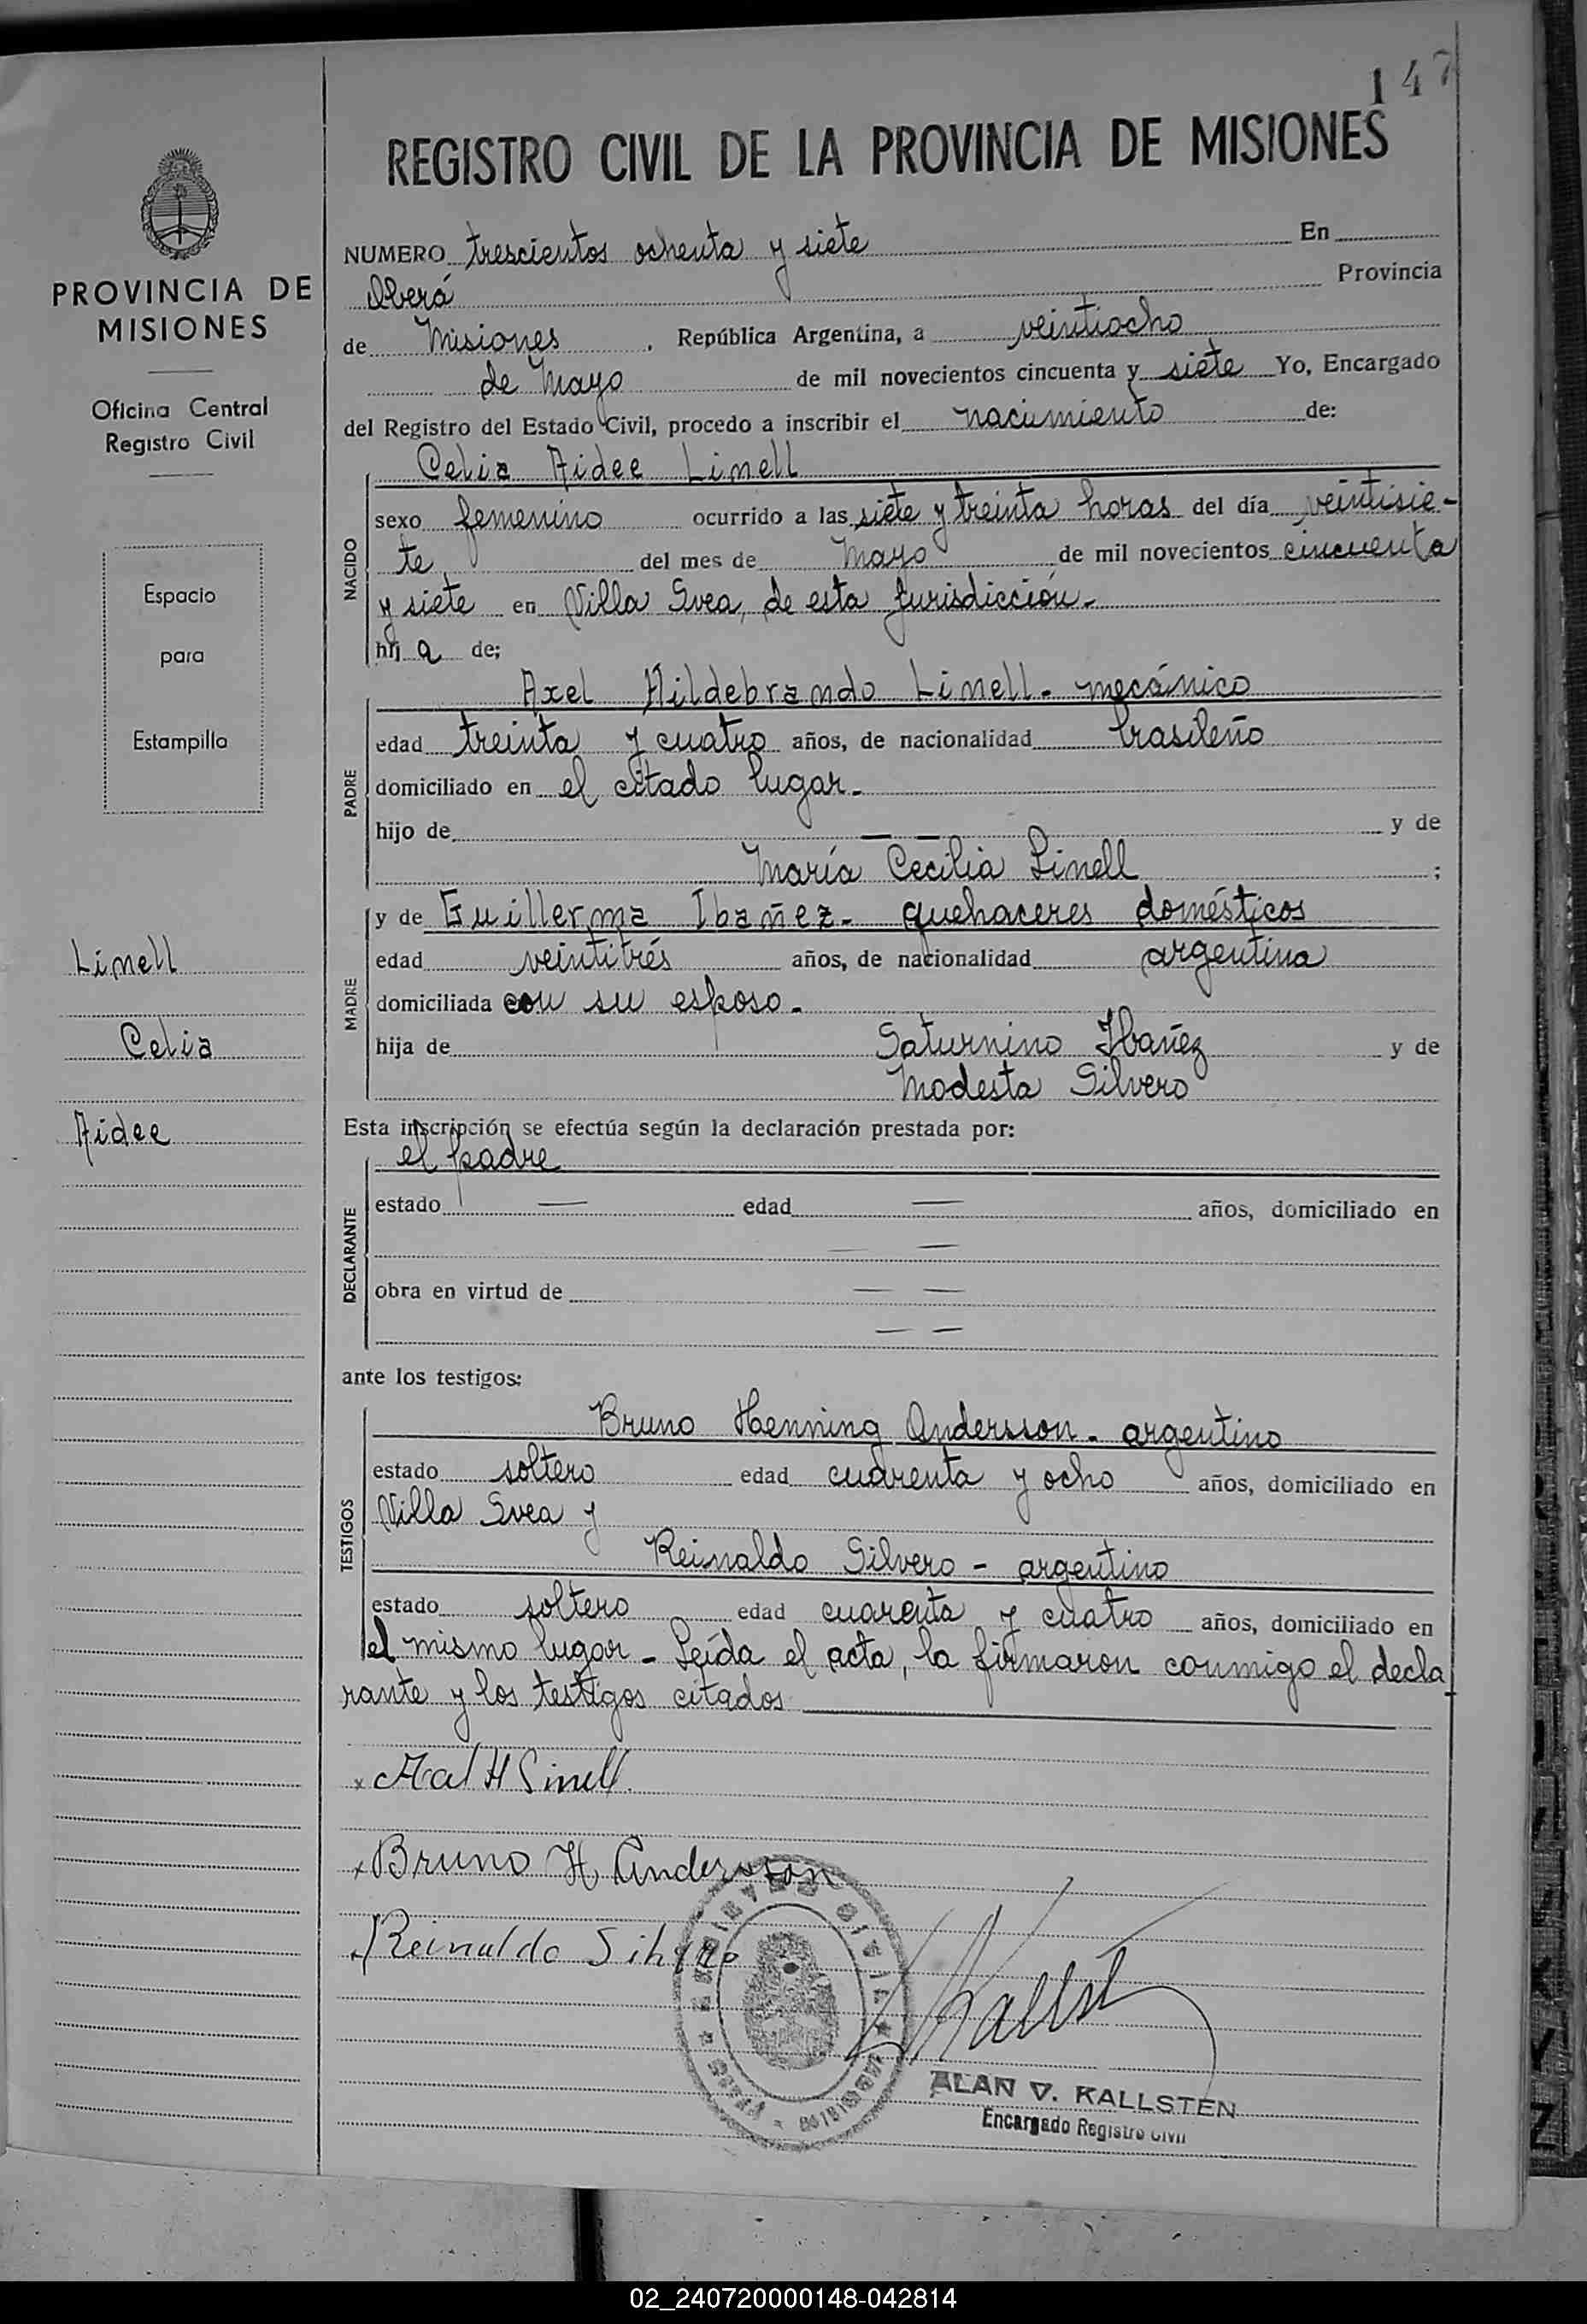 147
REGISTRO CIVIL DE LA PROVINCIA DE MISIONES
PROVINCIA DE
MISIONES
Oficina Central
Registro Civil
Espacio
para
Estampilla
Linell
Celia
Aidee
NUMERO trescientos ochenta y siete En
Oberá Provincia
de Misiones, República Argentina, a veintiocho
de Mayo de mil novecientos cincuenta y siete Yo, Encargado
del Registro del Estado Civil, procedo a inscribir el nacimiento de:
Celia Aidee Linell
NACIDO
sexo femenino ocurrido a las siete y treinta horas del día veintisie-
te del mes de Mayo de mil novecientos cincuenta
y siete en Villa Svea, de esta Jurisdicción.-
hij a de;
Axel Hildebrando Linell - mecánico
PADRE
edad treinta y cuatro años, de nacionalidad brasileño
domiciliado en el citado lugar.-
hijo de — — y de
María Cecilia Linell ;
y de Guillerma Ibañez - quehaceres domésticos
MADRE
edad veintitrés años, de nacionalidad argentina
domiciliada con su esposo.-
hija de Saturnino Ibañez y de
Modesta Silvero
Esta inscripción se efectúa según la declaración prestada por:
el padre
DECLARANTE
estado — edad — años, domiciliado en
— —
obra en virtud de — —
— —
ante los testigos:
Bruno Henning Andersson - argentino
TESTIGOS
estado soltero edad cuarenta y ocho años, domiciliado en
Villa Svea y
Reinaldo Silvero - argentino
estado soltero edad cuarenta y cuatro años, domiciliado en
el mismo lugar - Leída el acta, la firmaron conmigo el decla
rante y los testigos citados
x Axel H Linell
x Bruno H. Andersson
x Reinaldo Silvero
REGISTRO CIVIL
OBERA
MISIONES
Kallsten
ALAN V. KALLSTEN
Encargado Registro Civil
02_240720000148-042814